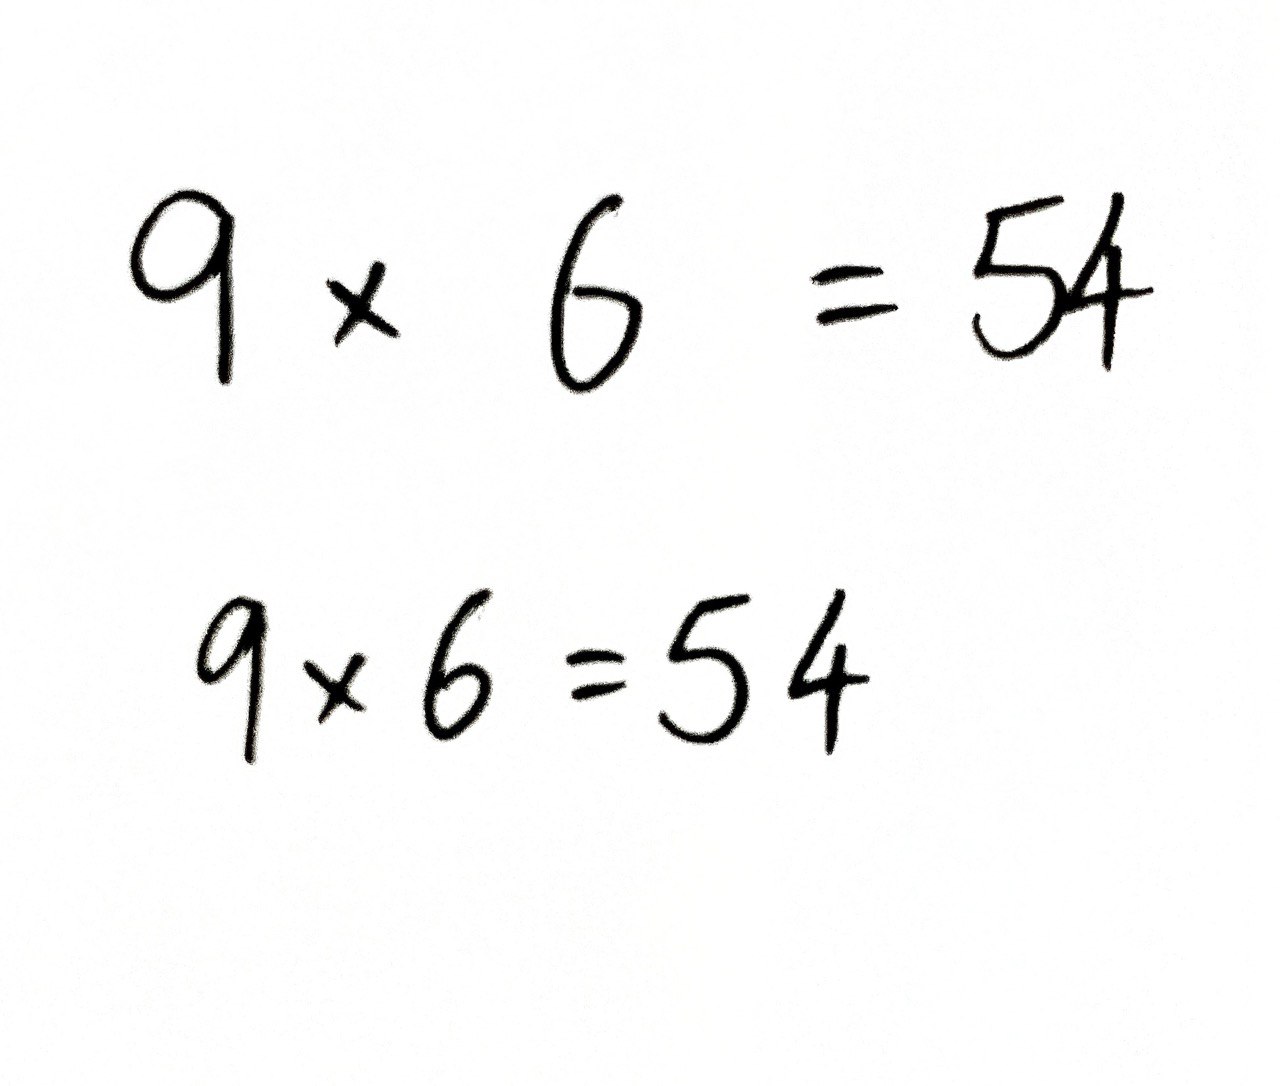 9 × 6 = 54
9 × 6 = 54